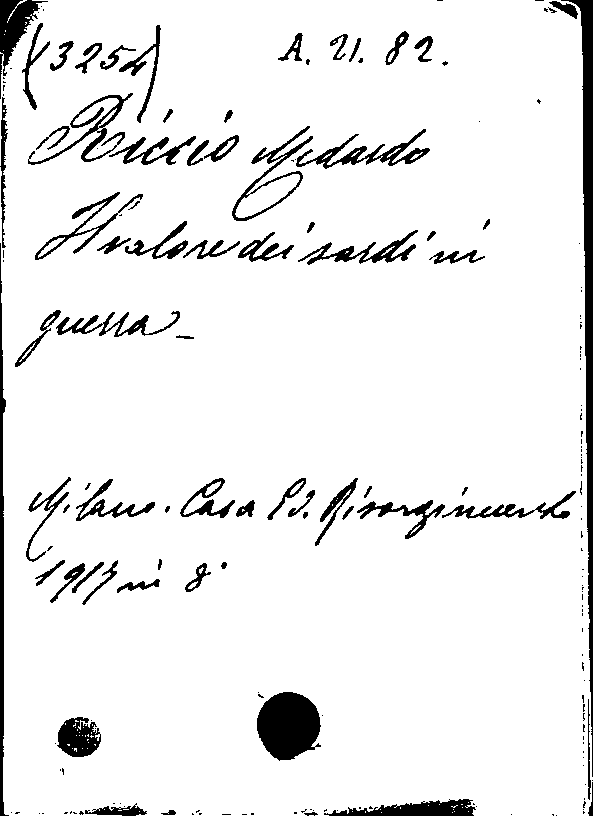 (3254) A. 21. 82.
Riccio Medardo
Il valore dei sardi in
guerra_
Milano. Casa Ed. Risorgimento
1917 in 8°